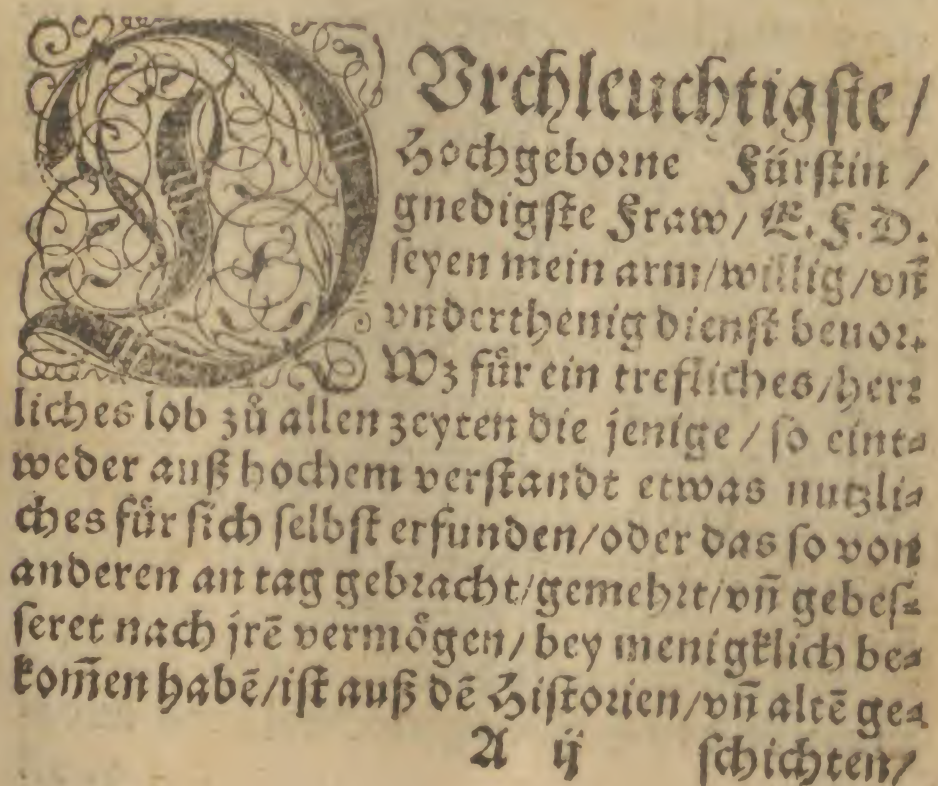 DVrchleuchtigſte /
Hochgeborne Fürſtin /
gnedigſte Fraw / E. F. D.
ſeyen mein arm / willig / vñ
vnderthenig dienſt beuor.
Wz für ein trefliches / herꝛ⸗
liches lob zů allen zeyten die jenige / ſo eint⸗
weder auß hochem verſtandt etwas nutzli⸗
ches für ſich ſelbſt erfunden / oder das ſo von
anderen an tag gebꝛacht / gemehꝛt / vñ gebeſ⸗
ſeret nach jrē vermögen / bey menigklich be⸗
kom̃en habē / iſt auß dē Hiſtoꝛien / vñ altē ge⸗
A ij ſchichten /